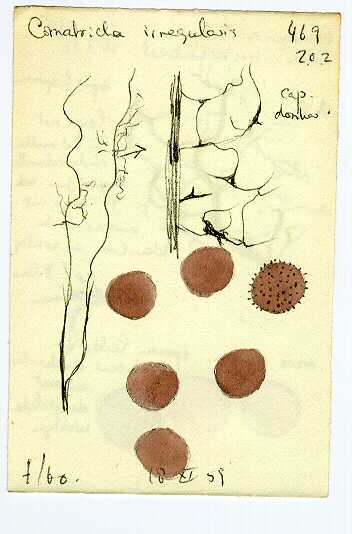 Comatricha irregularis 469
202
Cap.
7/60. 18 XI 59